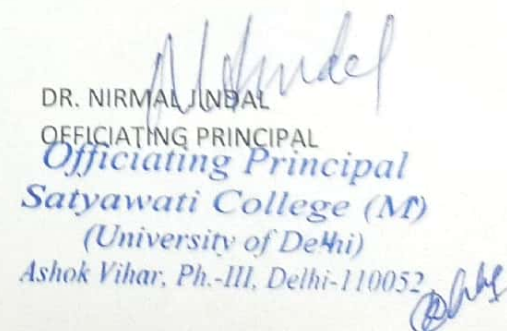 DR. NIRMAL JINDAL
OFFICIATING PRINCIPAL
Officiating Principal
Satyawati College (M)
(University of Delhi)
Ashok Vihar, Ph.-III, Delhi-110052